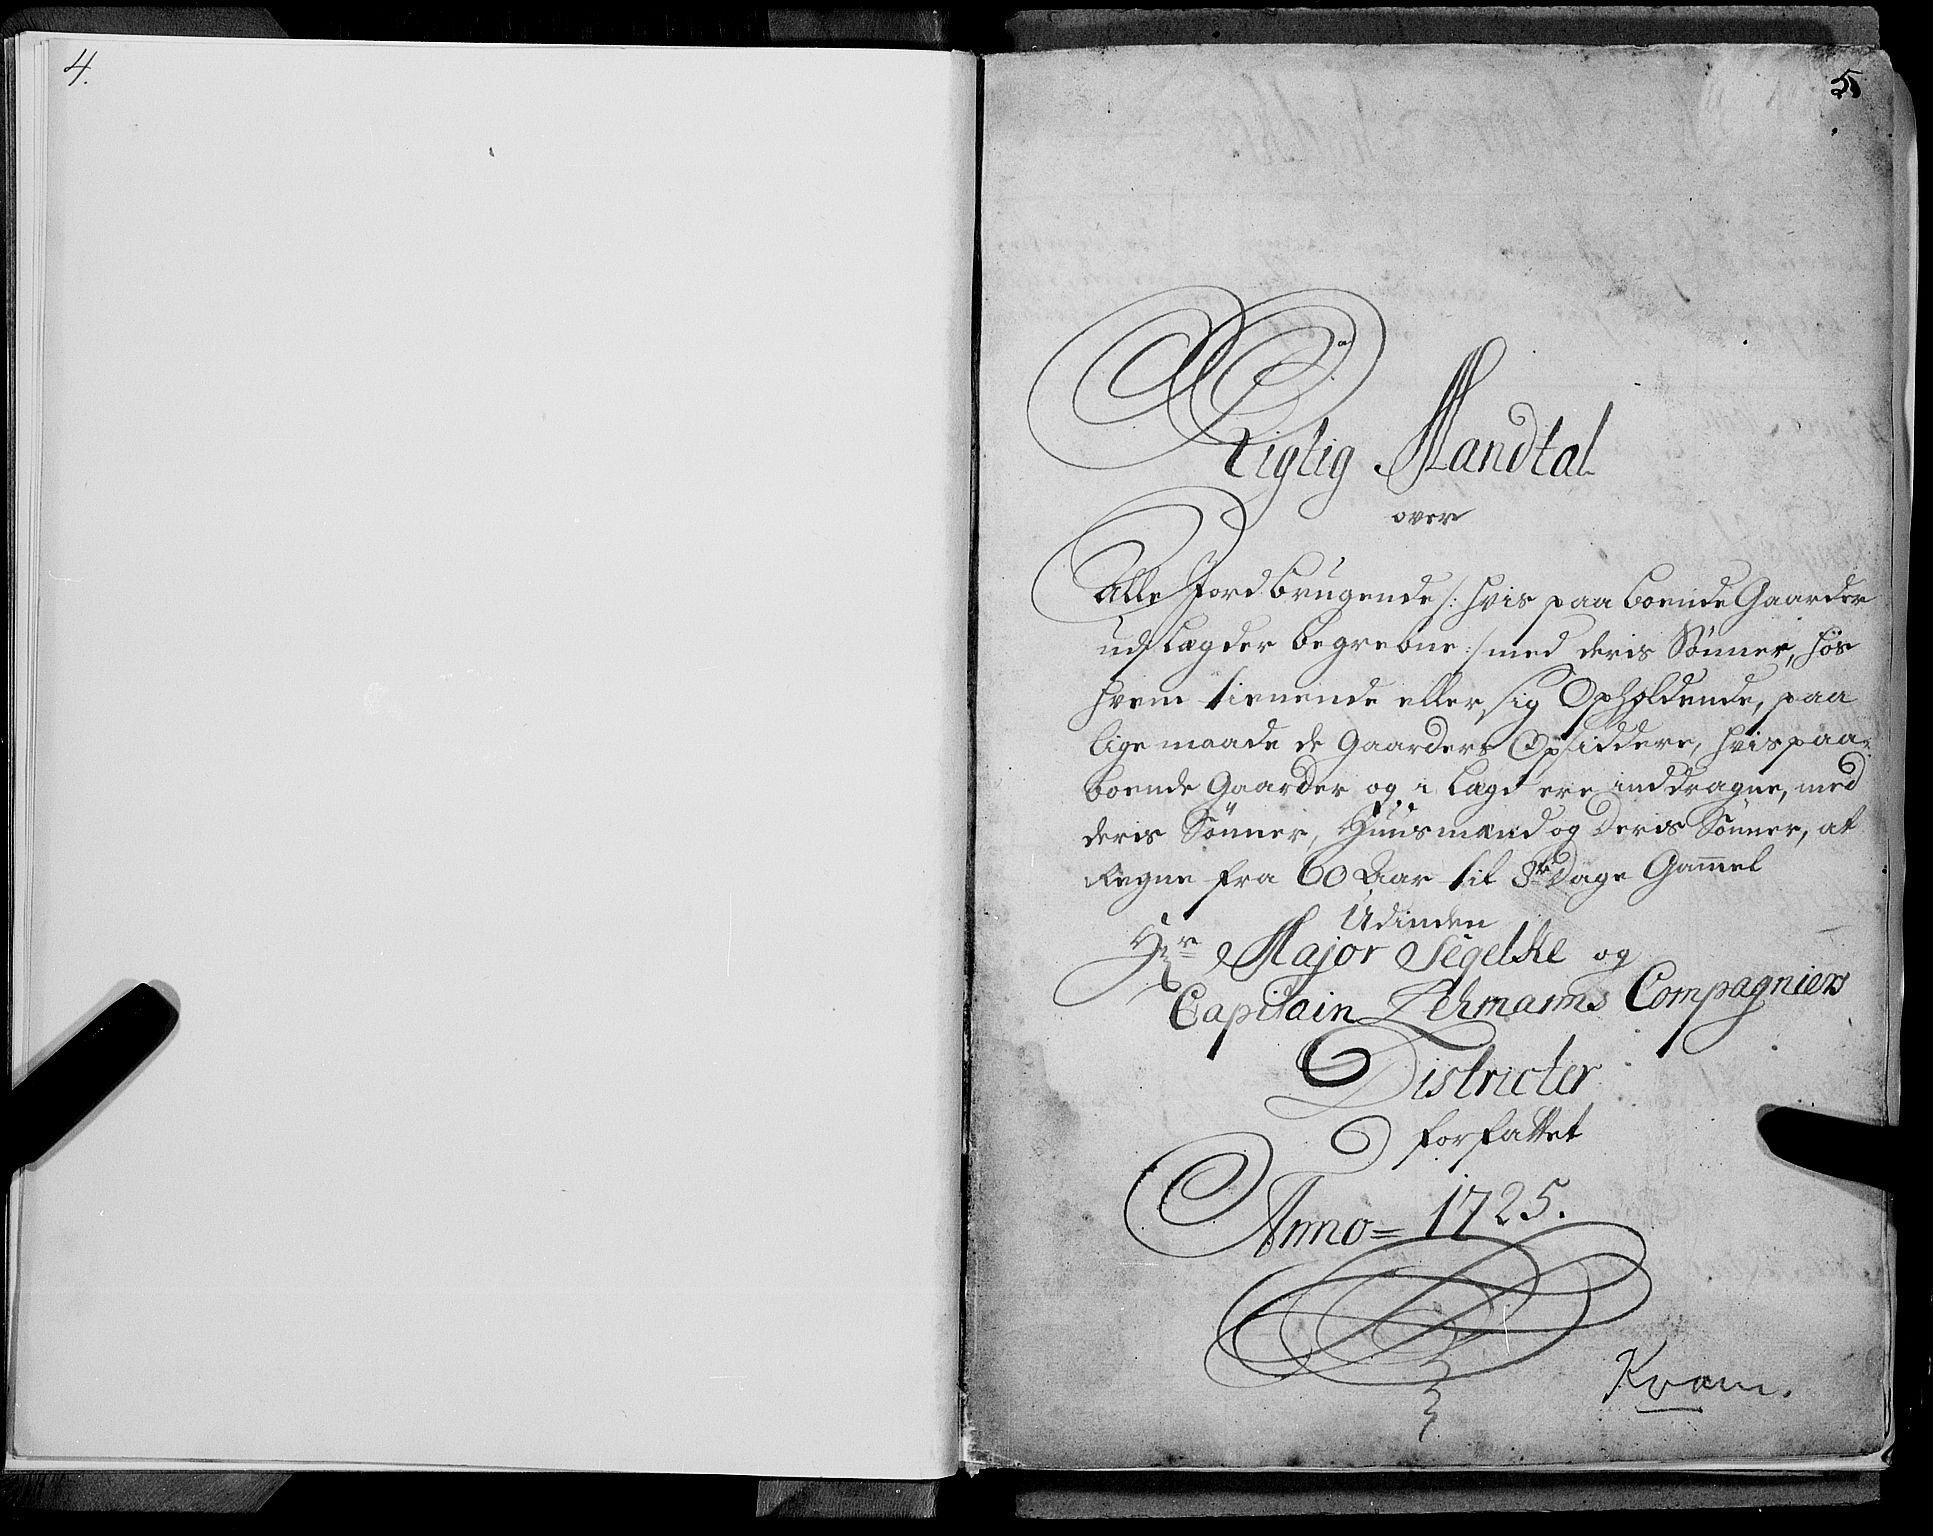 4.
5
Rigtig Mandtal
over
Alle Jordbrugende /: hvis paa boende Gaarder
ud lægder begrebne :/ med deris Sönner, hös
hvem tienende eller sig Opholdende, paa
lige maade de Gaarders Opsiddere, hvis paa-
boende Gaarder og i lægd ere inddragne, med
deris Sönner, Huusmænd og deris Sönner, at
Regne fra 60 Aar til 8te Dage Gamel
Udinden
Hr Major Segelke og
Capitain Lehmanns Compagniers
Districter
forfattet
Anno = 1725.
Kvam.